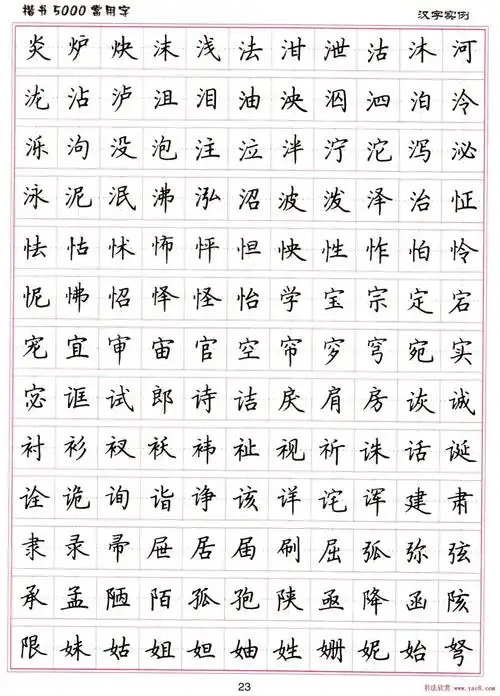 楷书5000常用字 汉字实例
炎炉炔沫浅法泔泄沽沐河
泷沾泸沮泪油泱泅泗泊泠
泺沟没泡注泣泮泞沱泻泌
泳泥泯沸泓沼波泼泽治怔
怯怙怵怖怦怛怏性怍怕怜
怩怫怊怿怪怡学宝宗定宕
宠宜审宙官空帘穸穹宛实
宓诓试郎诗诘戾肩房诙诚
衬衫衩袄祎祉视祈诛话诞
诠诡询诣诤该详诧诨建肃
隶录帚屉居届刷屈弧弥弦
承孟陋陌孤孢陕亟降函陔
限妹姑姐妲妯姓姗妮始弩
23
书法欣赏 www.yac8.com